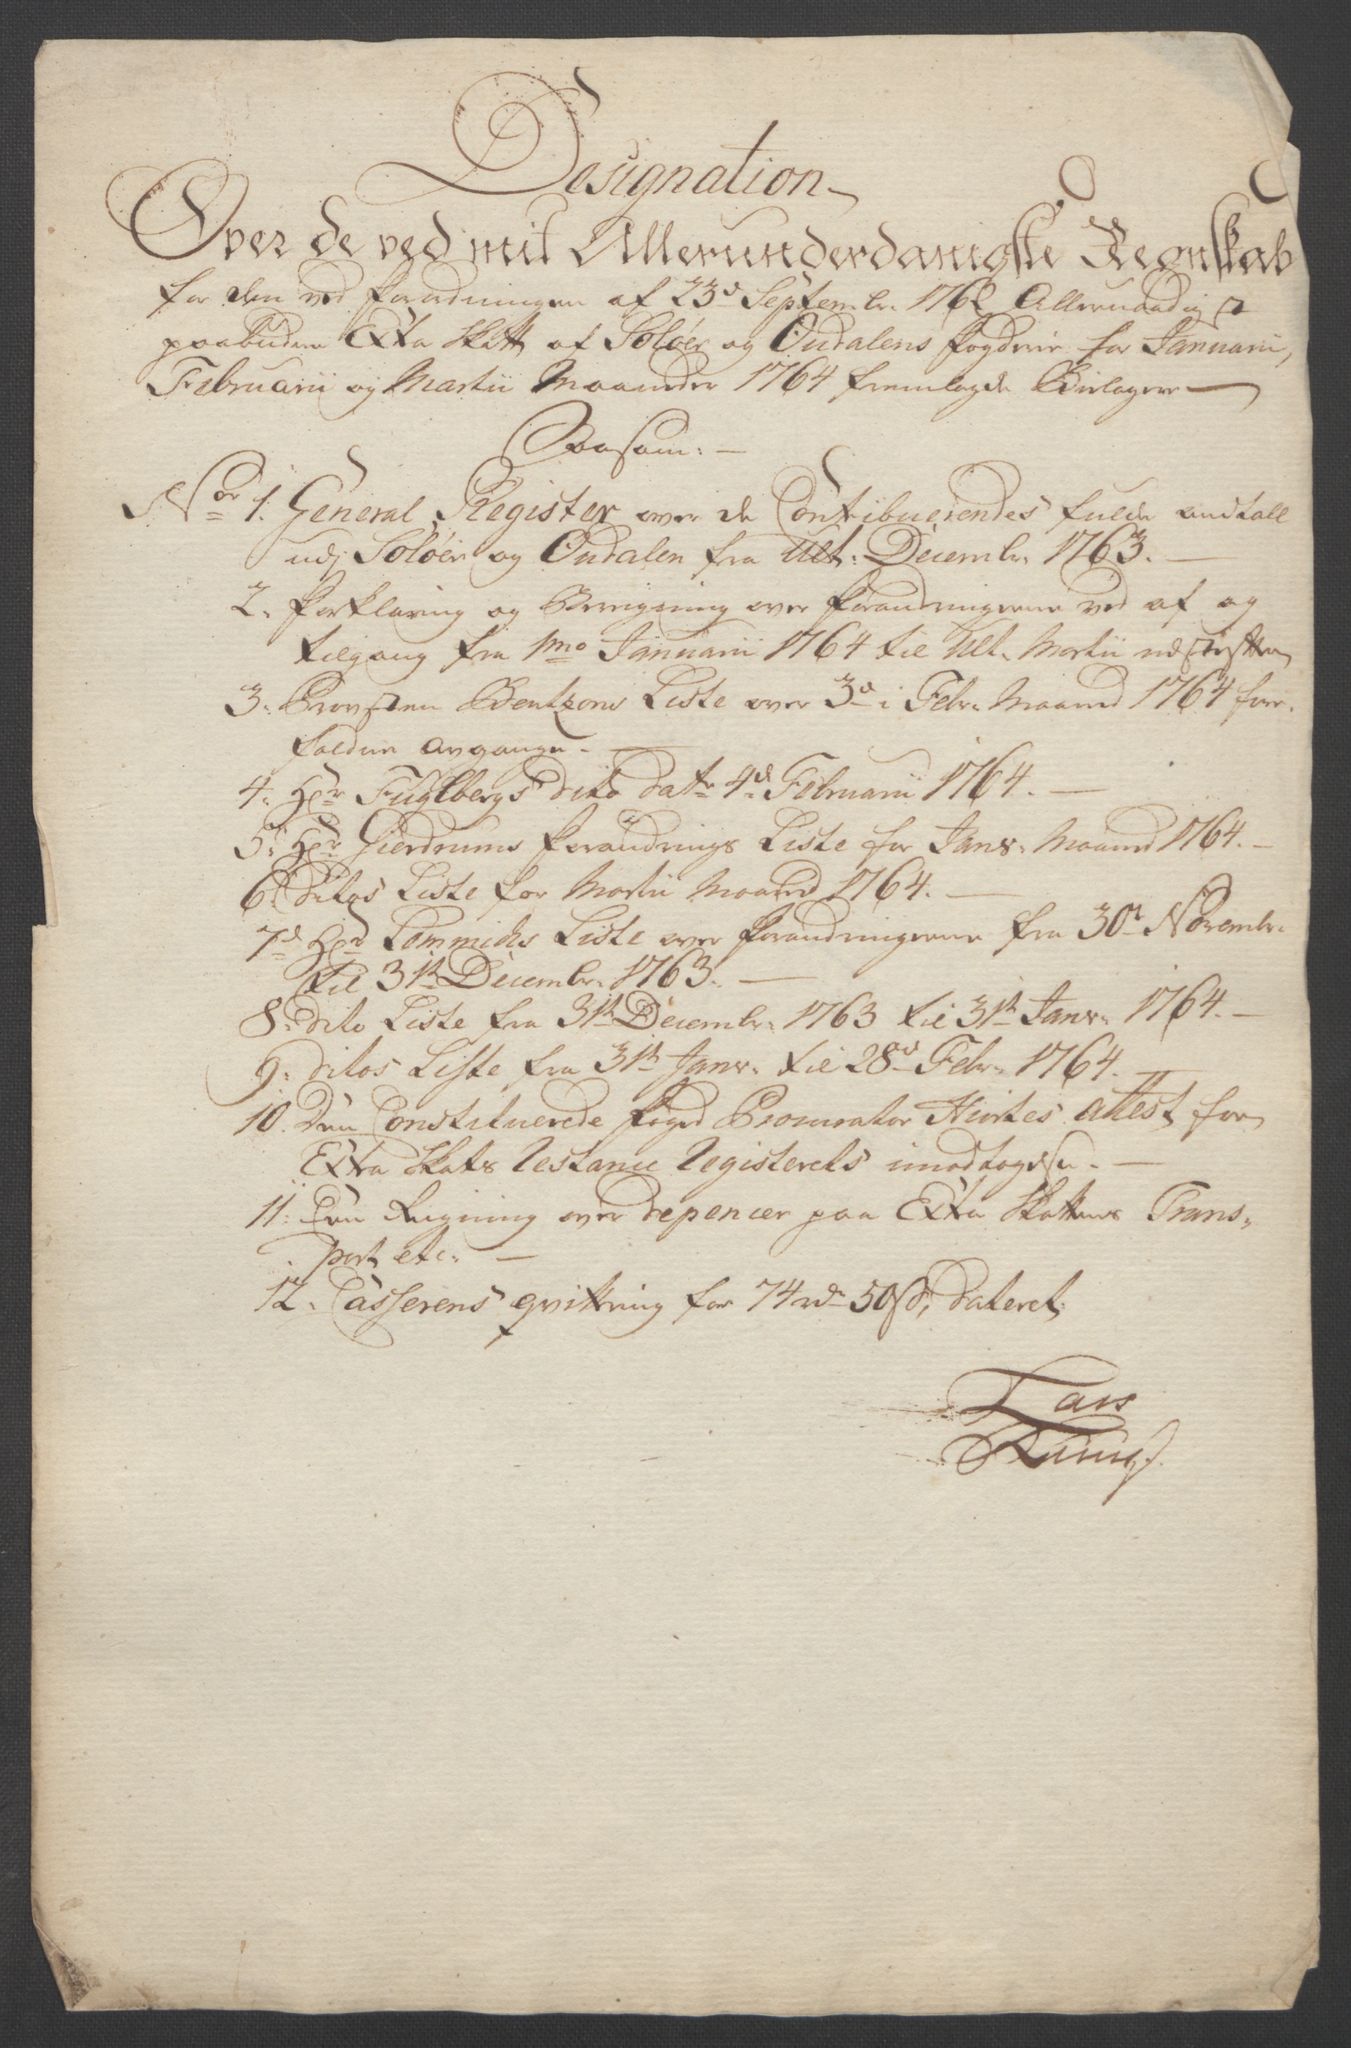 Designation
Over de ved mit Allerunderdanigste Regnskab
for den ved forordningen af 23d Septembr. 1762 Allernaadigst
paabudne Extra Skatt af Soløer og Oudalens fogderie for Januarii,
Februarii og Martii Maaneder 1764 fremlagde Bielager
Saasom:
Nor 1. General Register over de Contribuerendes fulde andtall
udj Soløer og Oudalen fra Ult: Decembr. 1763.
2. Forklaring og Beregning over forandringerne ved af og
tilgang fra 1mo Januarii 1764 til Ult. Martii
3. Provsten Bentzons Liste over 3de i Febr. Maaned 1764 fore-
faldne avgange.
4. Hr. Fuglbergs dito datr. 4d Februarii 1764.
5. Hr. Gierdrums forandrings Liste for Janr. Maaned 1764.
6. Ditos Liste for Martii Maaned 1764.
7d Hr. Lemmichs Liste over forandringerne fra 30n Novembr.
til 31te Decembr. 1763.
8. Dito Liste fra 31te Decembr. 1763 til 31te Janr. 1764.
9. Ditos Liste fra 31te Janr. til 28d Febr. 1764.
10. Den Constituerede foged Procurator Hiortes attest for
Extra Skats Restance Registerets imodtagelse.
11. En Regning over depencer paa Extra Skattens Trans-
port etc.
12. Casserens qvittering for 74 rdr 50 s, dateret
Lars